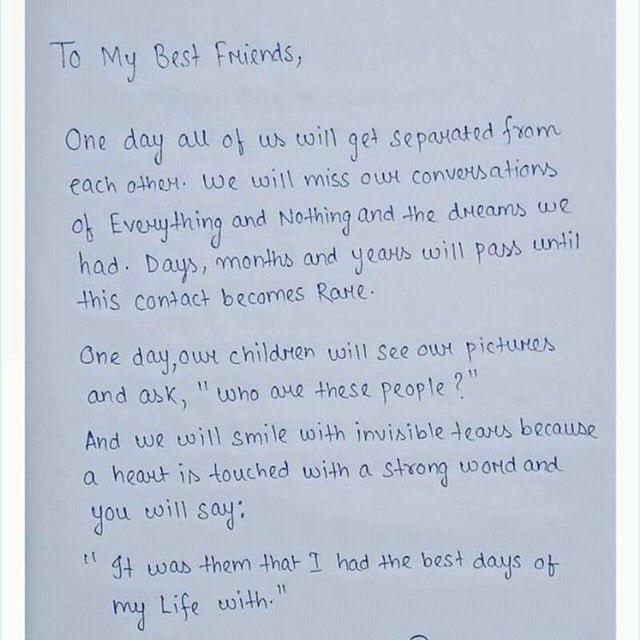 To My Best Friends,
One day all of us will get separated from
each other. We will miss our conversations
of Everything and Nothing and the dreams we
had. Days, months and years will pass until
this contact becomes Rare.
One day, our children will see our pictures
and ask, "who are these people?"
And we will smile with invisible tears because
a heart is touched with a strong word and
you will say:
"It was them that I had the best days of
my Life with."